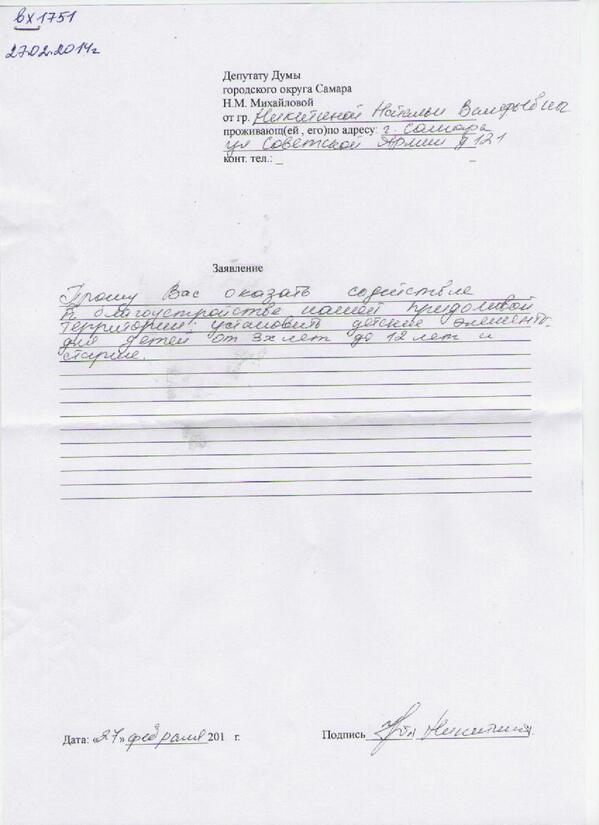 вх1751
27.02.2014г
Депутату Думы
городского округа Самара
Н.М. Михайловой
от гр. Никитиной Натальи Валерьевны
проживающ(ей , его)по адресу: г. Самара
ул Советской Армии д 121
конт. тел.: _ _
Заявление
Прошу Вас оказать содействие
в благоустройстве нашей придомовой
территории: установить детские элементы
для детей от 3х лет до 12 лет и
старше.
Дата: «27» февраля 201 г. Подпись Никитина